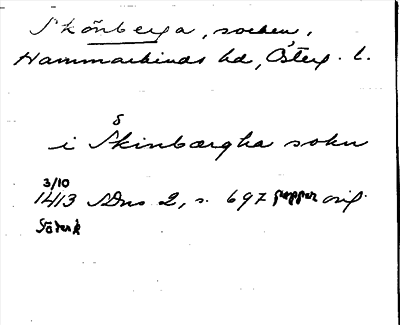 Skönberga, socken,
Hammarkinds hd, Österg. l.
i Skinbærgha sokn
3/10
1413 SDns 2, s. 697 papper orig.